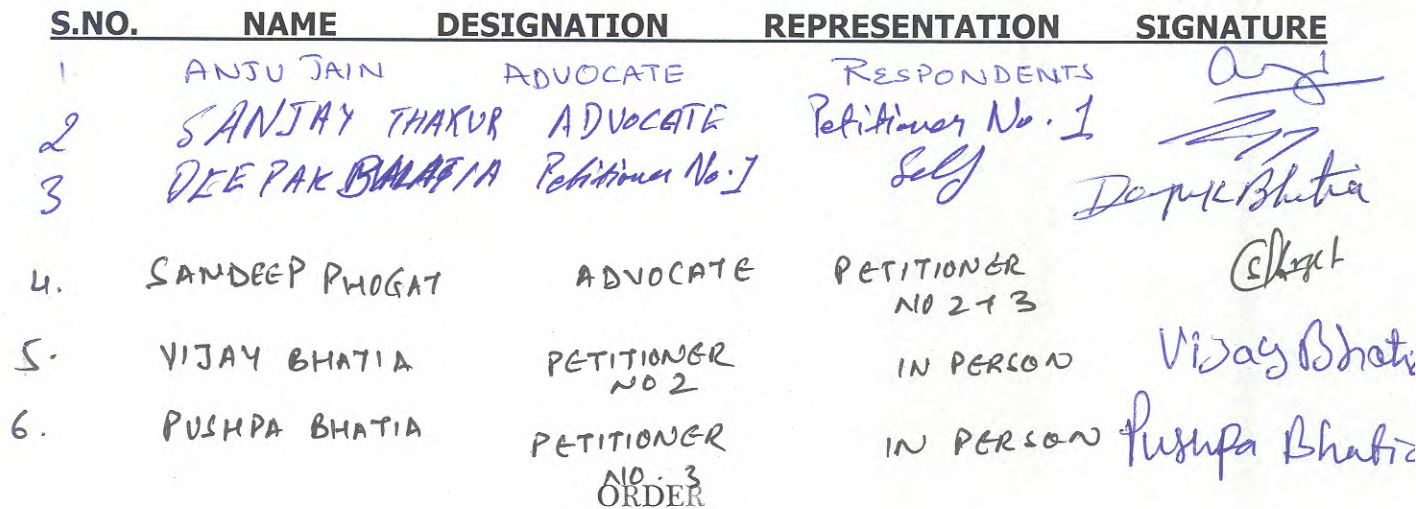 S.NO. NAME DESIGNATION REPRESENTATION SIGNATURE
1 ANJU JAIN ADVOCATE RESPONDENTS
2 SANJAY THAKUR ADVOCATE Petitioner No. 1
3 DEEPAK BHATIA Petitioner No. 1 Self Deepak Bhatia
4. SANDEEP PHOGAT ADVOCATE PETITIONER
NO 2 + 3
5. VIJAY BHATIA PETITIONER IN PERSON Vijay Bhatia
NO 2
6. PUSHPA BHATIA PETITIONER IN PERSON Pushpa Bhatia
NO. 3
ORDER